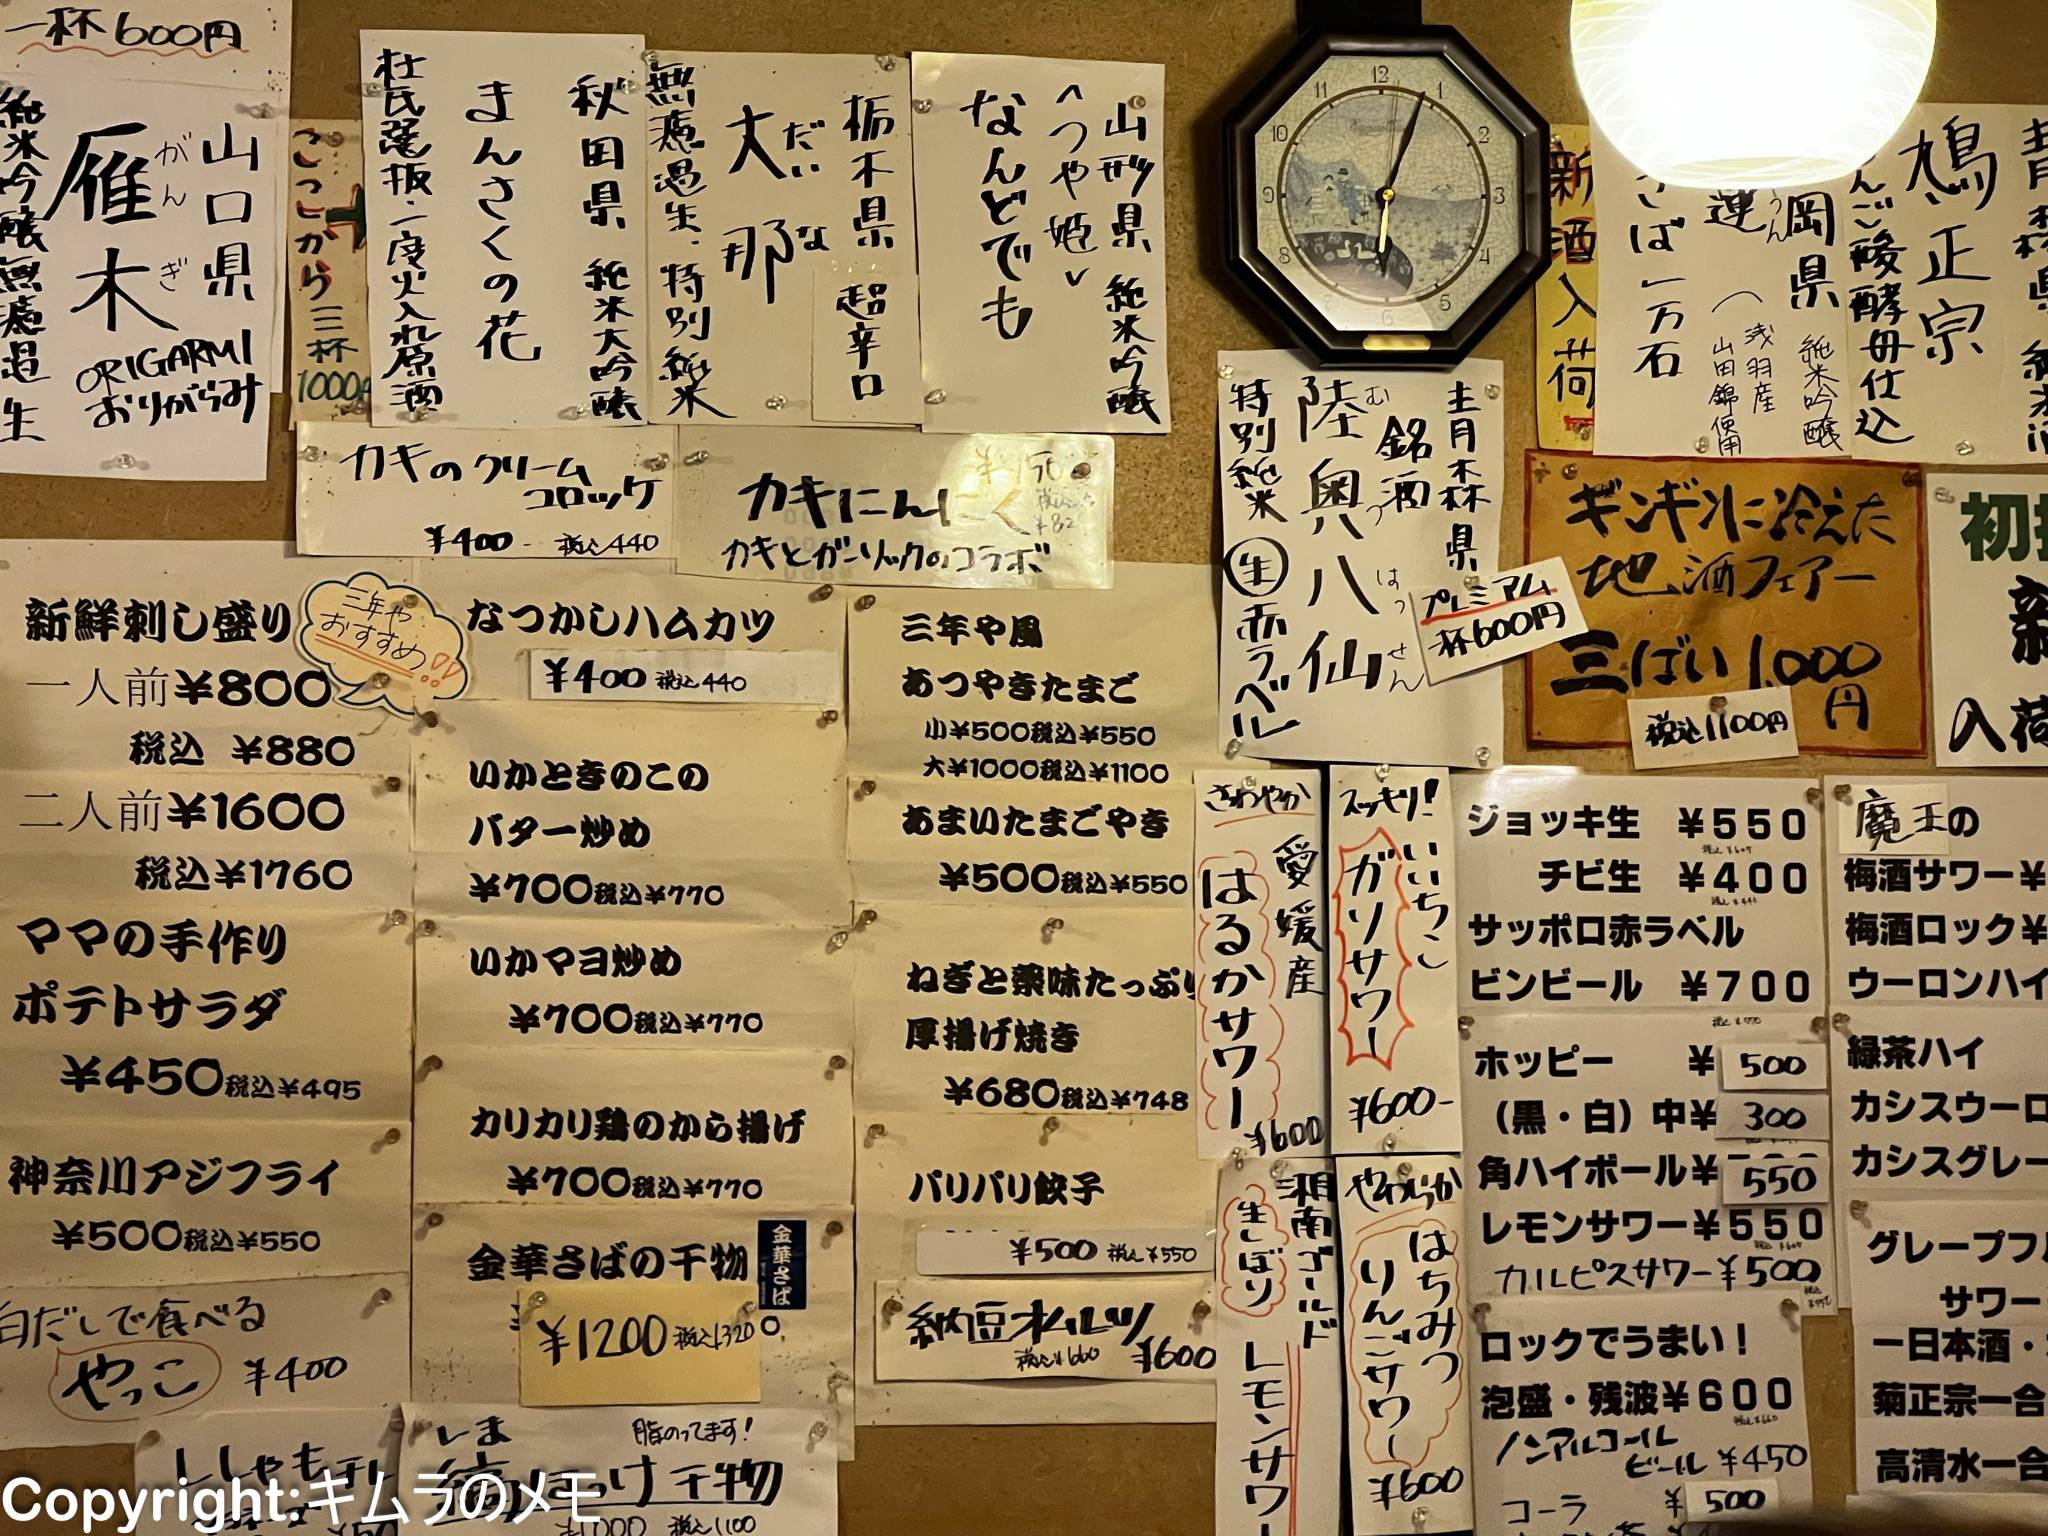 一杯600円
山口県
雁木
がんぎ
ORIGARMI
おりがらみ
純米吟醸無濾過生
ここから
三杯
秋田県 純米大吟醸
まんさくの花
杜氏選抜・一度火入れ原酒
栃木県
超辛口
大那
だいな
無濾過生、特別純米
山形県 純米吟醸
<つや姫>
なんどでも
12
1
2
3
4
5
6
7
8
9
10
11
新酒入荷
岡県 純米吟醸
浅羽産
山田錦使用
ば一万石
鳩正宗
んご酸酵母仕込
カキのクリーム
コロッケ
¥400- 税込440
カキにんにく
カキとガーリックのコラボ
青森県
銘酒
陸奥八仙
むつはっせん
特別純米 生 赤ラベル
プレミアム
一杯600円
ギンギンに冷えた
地酒フェアー
三ばい1,000円
税込1100円
入荷
新鮮刺し盛り
一人前¥800
税込 ¥880
二人前¥1600
税込¥1760
三年や
おすすめ!!
ママの手作り
ポテトサラダ
¥450税込¥495
神奈川アジフライ
¥500税込¥550
白だしで食べる
やっこ ¥400
なつかしハムカツ
¥400 税込440
いかときのこの
バター炒め
¥700税込¥770
いかマヨ炒め
¥700税込¥770
カリカリ鶏のから揚げ
¥700税込¥770
金華さばの干物
金華さば
¥1200 税込1320
三年や風
あつやきたまご
小¥500税込¥550
大¥1000税込¥1100
あまいたまごやき
¥500税込¥550
ねぎと薬味たっぷり
厚揚げ焼き
¥680税込¥748
パリパリ餃子
¥500 税込¥550
納豆オムレツ
税込¥660 ¥600
さわやか
愛媛産
はるかサワー
¥600
スッキリ!
いいちこ
ガリサワー
¥600-
湘南ゴールド
生しぼり
レモンサワー
やわらか
はちみつ
りんごサワー
¥600
ジョッキ生 ¥550
チビ生 ¥400
サッポロ赤ラベル
ビンビール ¥700
ホッピー ¥500
(黒・白)中¥300
角ハイボール¥550
レモンサワー¥550
カルピスサワー¥500
ロックでうまい!
泡盛・残波¥600
ノンアルコール
ビール ¥450
コーラ ¥500
魔王の
梅酒サワー¥
梅酒ロック¥
ウーロンハイ
緑茶ハイ
カシスウーロ
カシスグレー
グレープフル
サワー
一日本酒・
菊正宗一合
高清水一合
ししゃも
しま
脂のってます!
ほっけ干物
税込1100
Copyright:キムラのメモ